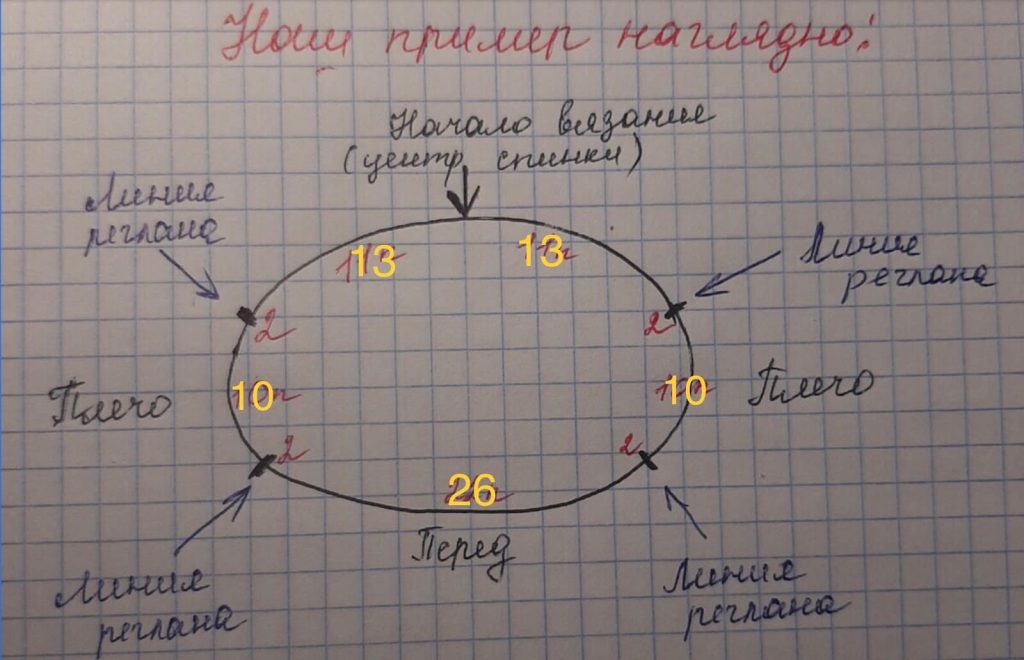 Наш пример наглядно:
Начало вязания
(центр спинки)
Линия
реглана
Линия
реглана
13
13
2
2
Плечо
10
10
Плечо
2
2
26
Перед
Линия
реглана
Линия
реглана